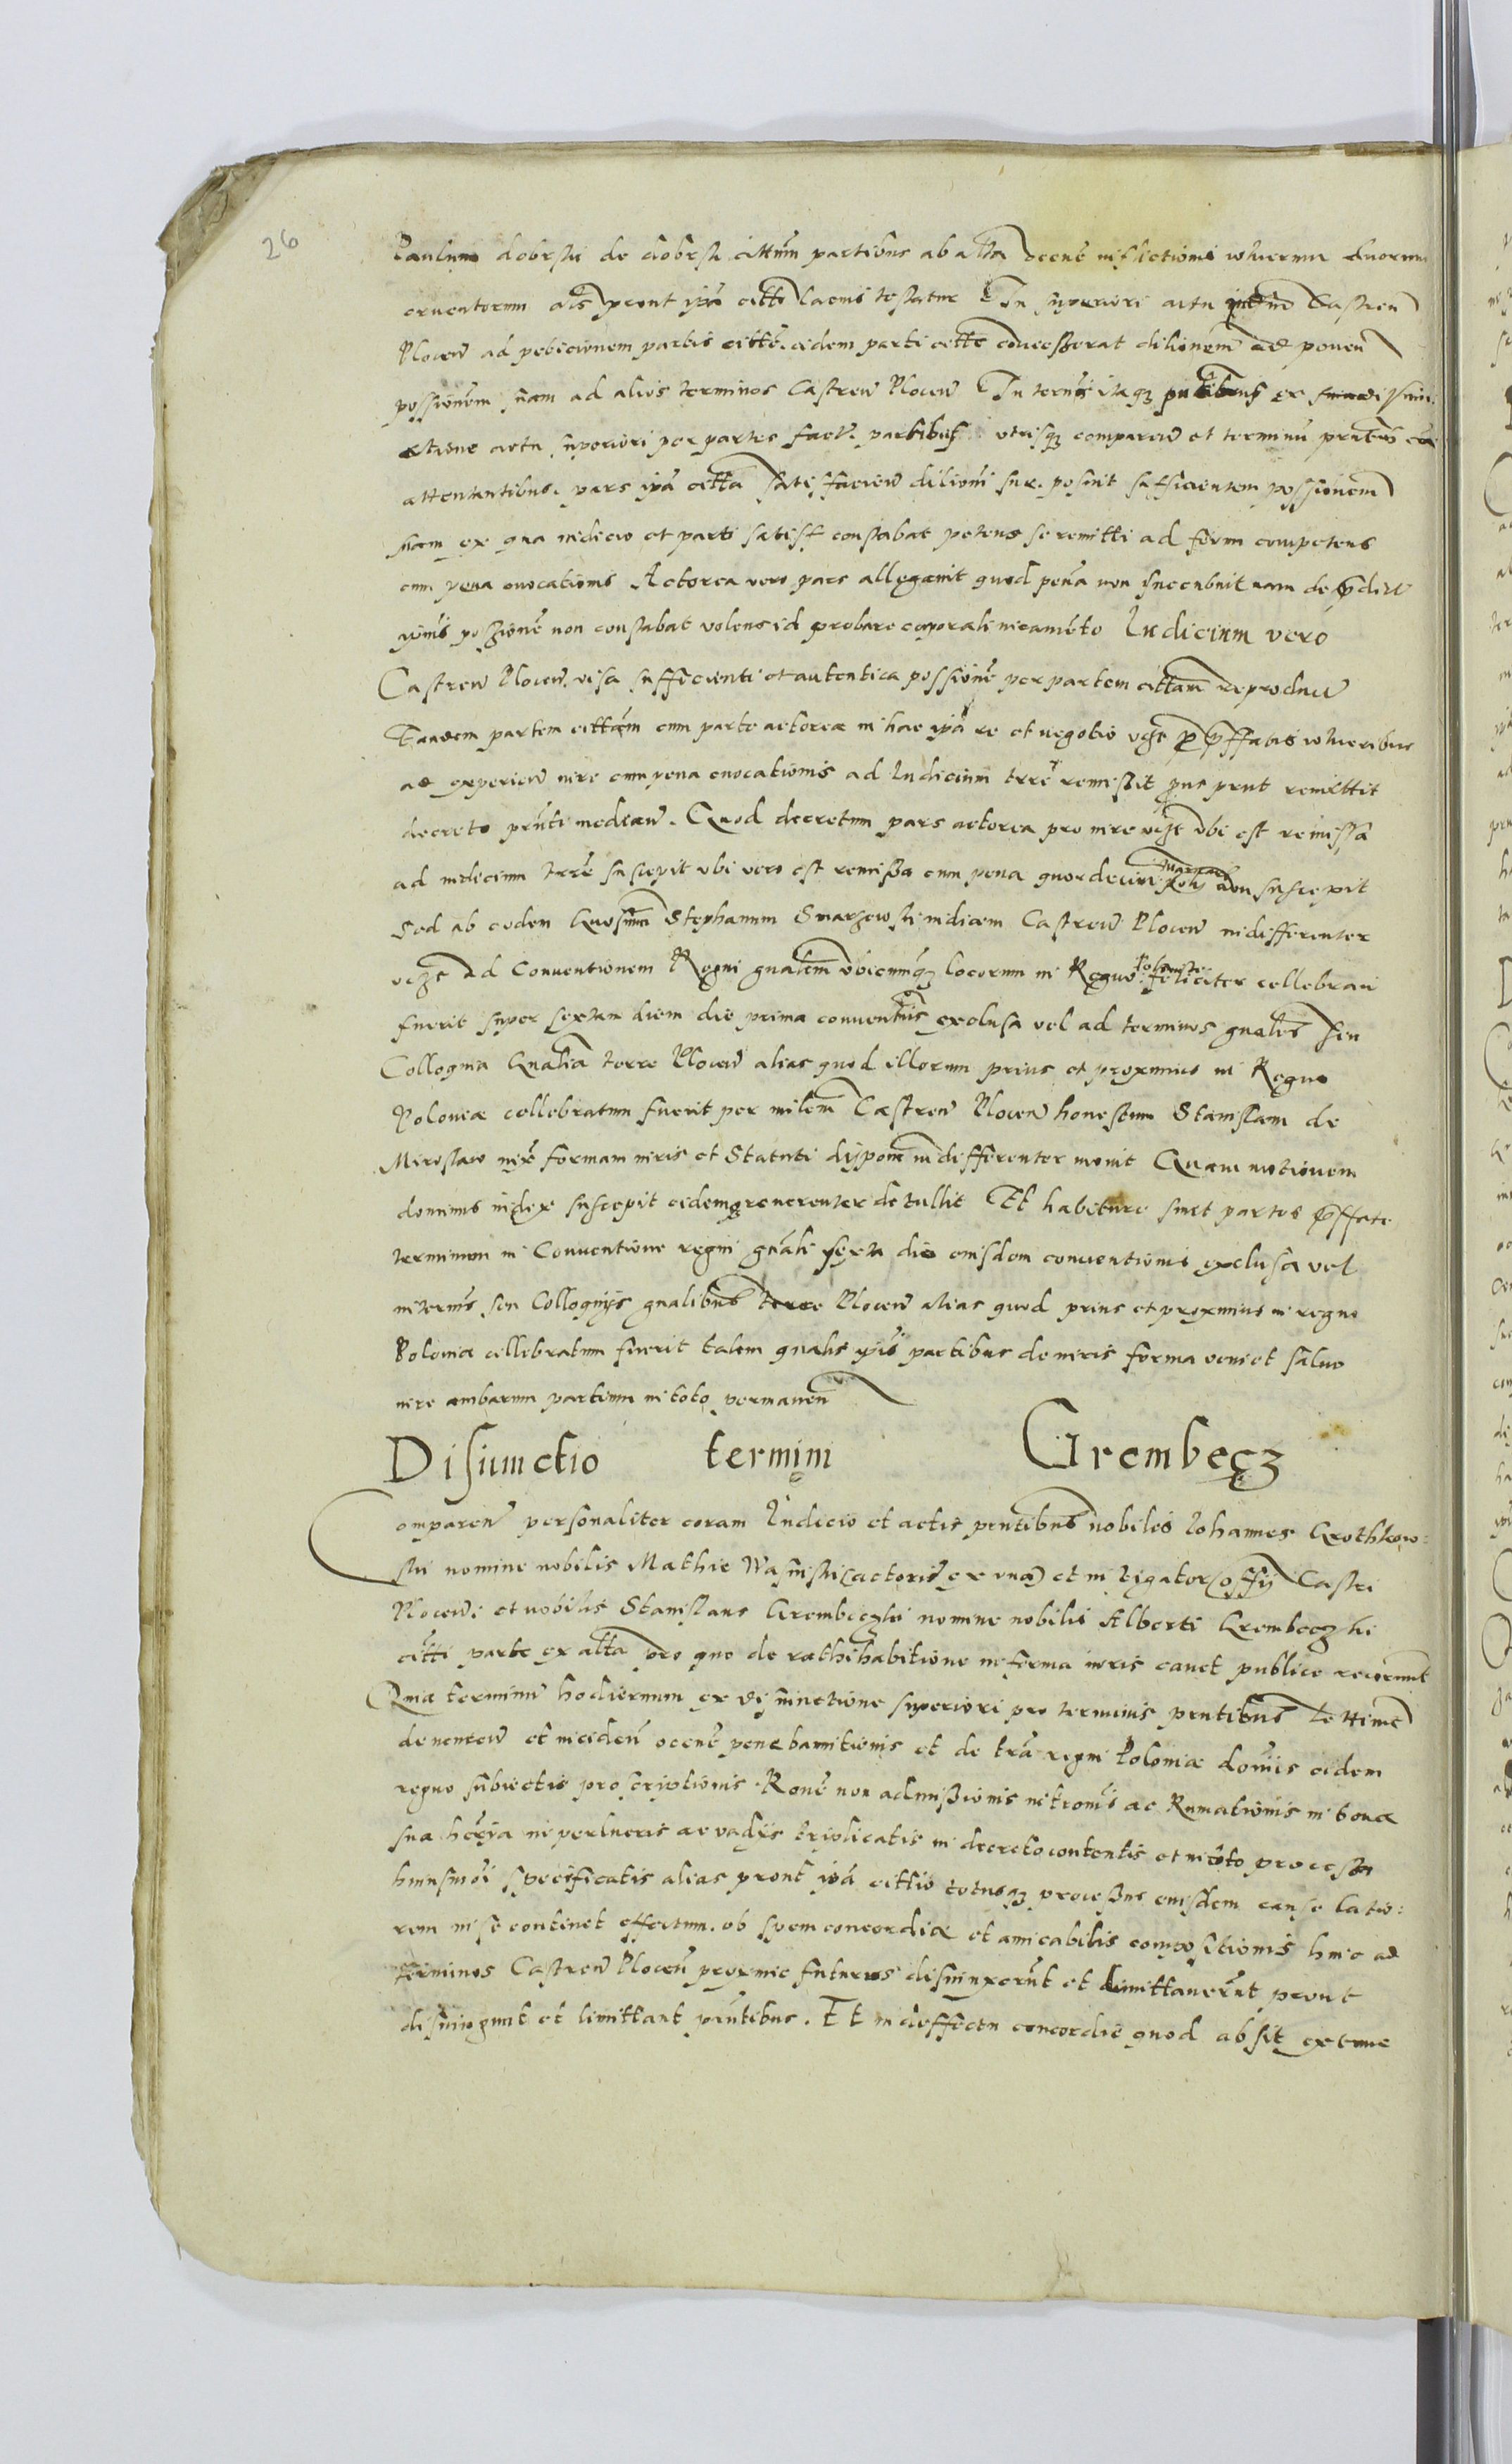 26
Paulum dobrski de dobrsk cittum partibus ab alta occne inflictionis wlnerum duorum
cruentorum als prout ipa citto lacius testatur In superiori actu Castren
Plocen ad peticionem partis citte eidem parti citte concesserat dilionem ad ponen
possionem suam ad alios terminos Castren Plocen In termis itaqz pntibus ex disiun
ctione actu superiori per partes fact partibus utrisqz comparen et terminum
attentantibus. pars ipa citta satisfacien dilioni sue posuit sufficientem possionem
suam ex qua iudicio et parti satisf constabat petens se remitti ad forum competens
cum pena evocationis Actorea vero pars allegavit quod pena non succubuit nam de
possione non constabat volens id probare corporali iuramento Iudicium vero
Castren Plocen visa sufficienti et autentica possione per partem cittam reproducta
Eandem partem cittam cum parte actorea in hac ipa re et negotio vzt pro pffatis wlneribus
ad experien iure cum pena evocationis ad Iudicium trre remisit prout remittit
decreto pnti median. Quod decretum pars actorea pro iure vzt ubi est remissa
ad iudicium trre suscepit ubi vero est remissa cum pena quordecim marcar non suscepit
Sed ab eodem Gnosum Stephanum Smarzewski iudicem Castren Plocen indifferenter
vzt ad Conventionem Regni gnalem ubicumqz locorum in Regno Polonie feliciter cellebrari
fuerit super sextam diem die prima conventus exclusa vel ad terminos gnales seu
Colloquia Gnalia terre Plocen alias quod illorum prius et proximius in Regno
Poloniæ cellebratum fuerit per milem Castren Plocen honestum Stanislaum de
Miroslaw iux formam iuris et Statuti dispone indifferenter movit Quam motionem
dominus iudex suscepit eidemqz reverenter detullit Et habiture sunt partes pffate
terminum in Conventione regni gnali sexta die eiusdem conventionis exclusa vel
in termis seu Colloquijs gnalibus terre Plocen alias quod prius et proximius in regno
Poloniæ cellebratum fuerit talem qualis ipis partibus de iuris forma veniet salvo
iure ambarum partium in toto permanen
Disiunctio termini Grembecz
Comparen personaliter coram Iudicio et actis pntibus nobiles Iohannes Grothkow:
ski nomine nobilis Mathie Wasniski actoris ex una et instigator offij Castri
Plocen: et nobilis Stanislaus Grembeczki nomine nobilis Alberti Grembeczki
citti parte ex alta pro quo de rathihabitione in forma iuris cavet publice recognt
Quia terminum hodiernum ex disiunctione superiori pro terminis pntibus
devenien et inciden occne pene bannitionis et de tra regni Poloniæ domiis eidem
regno subiectis proscriptionis. Rone non admissionis introm̃is ac Rumationis in bona
sua heria in perlucris ac vadijs triplicatis in decreto contentis et in toto processu
huiusmoi specificatis alias prout ipa cittio totusqz processus eiusdem cause latio:
rem in se continet effectum. ob spem concordiæ et amicabilis compositionis hinc ad
terminos Castren Plocen proxime futuros disiunxerunt et limittaverunt prout
disiungunt et limittant pntibus. Et in deffectu concordie quod absit extunc